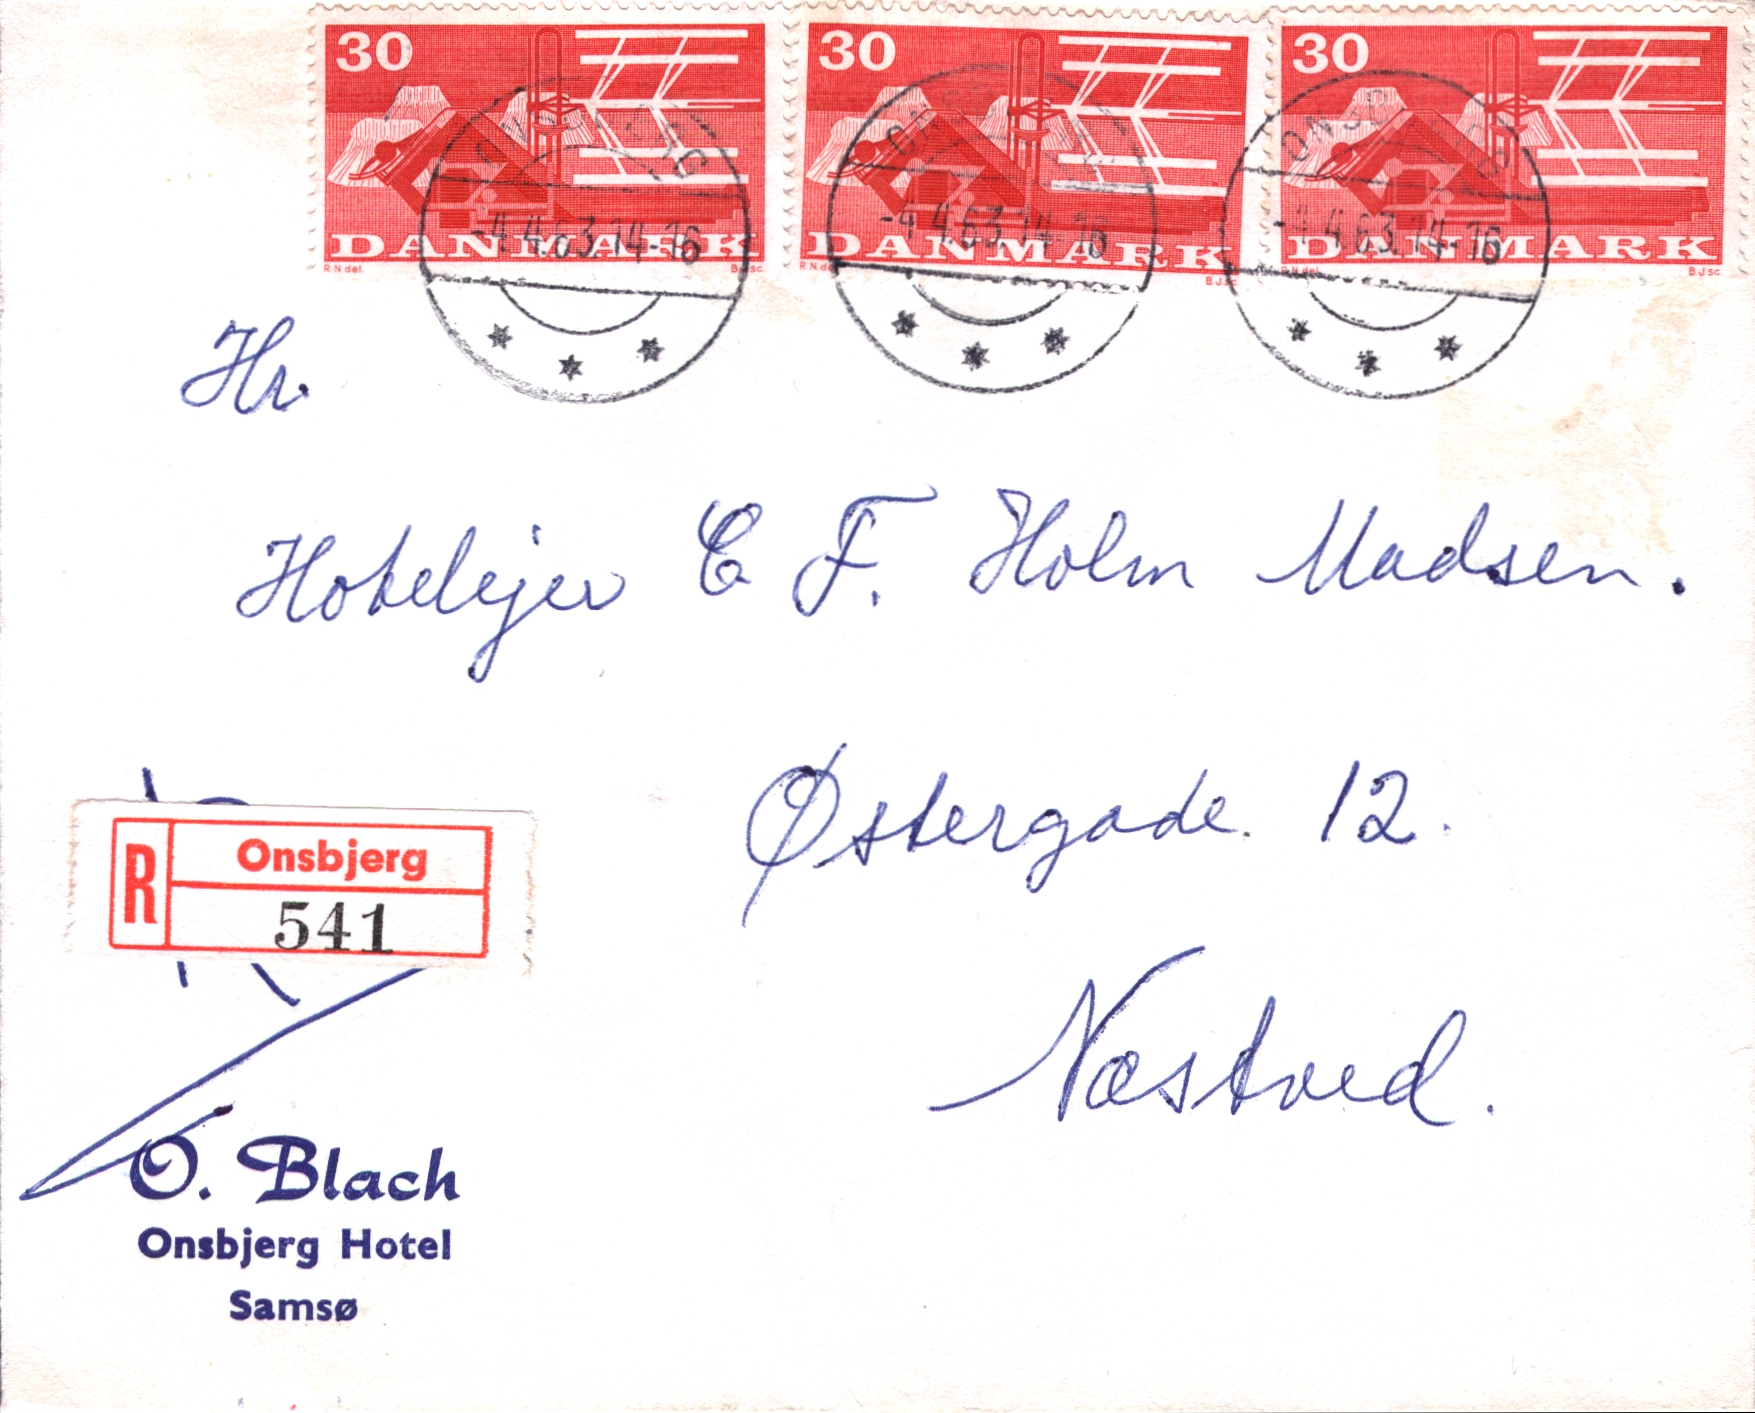 30 30 30
DANMARK DANMARK DANMARK
R.N del. B.J.sc. R.N del. B.J.sc. R.N del. B.J.sc.
ONSBJERG ONSBJERG ONSBJERG
-4.4.63.14-16 -4.4.63.14-16 -4.4.63.14-16
Hr.
Hotelejer C F. Holm Madsen.
Østergade. 12.
Næstved.
R Onsbjerg
541
O. Blach
Onsbjerg Hotel
Samsø